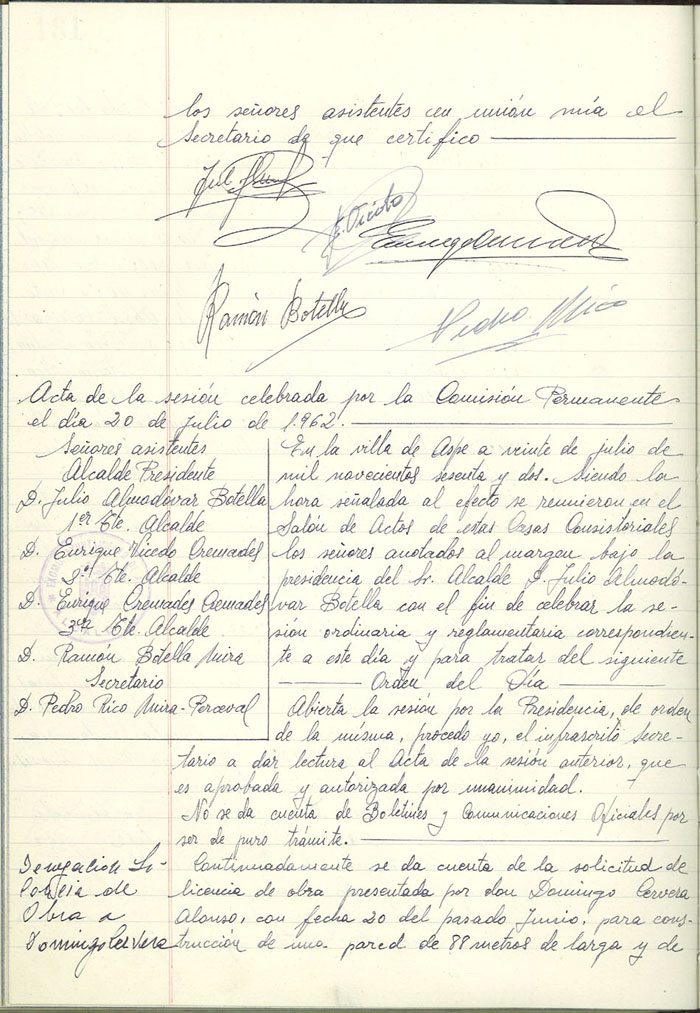 los señores asistentes en unión mía el
Secretario de que certifico
E. Vicedo
Ramón Botella
Pedro Rico
Acta de la sesión celebrada por la Comisión Permanente
el día 20 de Julio de 1.962.
Señores asistentes
Alcalde Presidente
D. Julio Almodóvar Botella
1er Tte. Alcalde
D. Enrique Vicedo Cremades
2º Tte. Alcalde
D. Enrique Cremades Cremades
3er Tte. Alcalde
D. Ramón Botella Mira
Secretario
D. Pedro Rico Mira-Perceval
En la villa de Aspe a veinte de julio de
mil novecientos sesenta y dos. Siendo la
hora señalada al efecto se reunieron en el
Salón de Actos de estas Casas Consistoriales
los señores anotados al margen bajo la
presidencia del Sr. Alcalde D. Julio Almodó-
var Botella con el fin de celebrar la se-
sión ordinaria y reglamentaria correspondien-
te a este día y para tratar del siguiente
Orden del Día
Abierta la sesión por la Presidencia, de orden
de la misma, procedo yo, el infrascrito Secre-
tario a dar lectura al Acta de la sesión anterior, que
es aprobada y autorizada por unanimidad.
No se da cuenta de Boletines y Comunicaciones Oficiales por
ser de puro trámite.
Denegación Li-
de
Obra a
Domingo Cervera
Continuadamente se da cuenta de la solicitud de
licencia de obra presentada por don Domingo Cervera
Alonso, con fecha 20 del pasado Junio, para cons-
trucción de una pared de 88 metros de larga y de